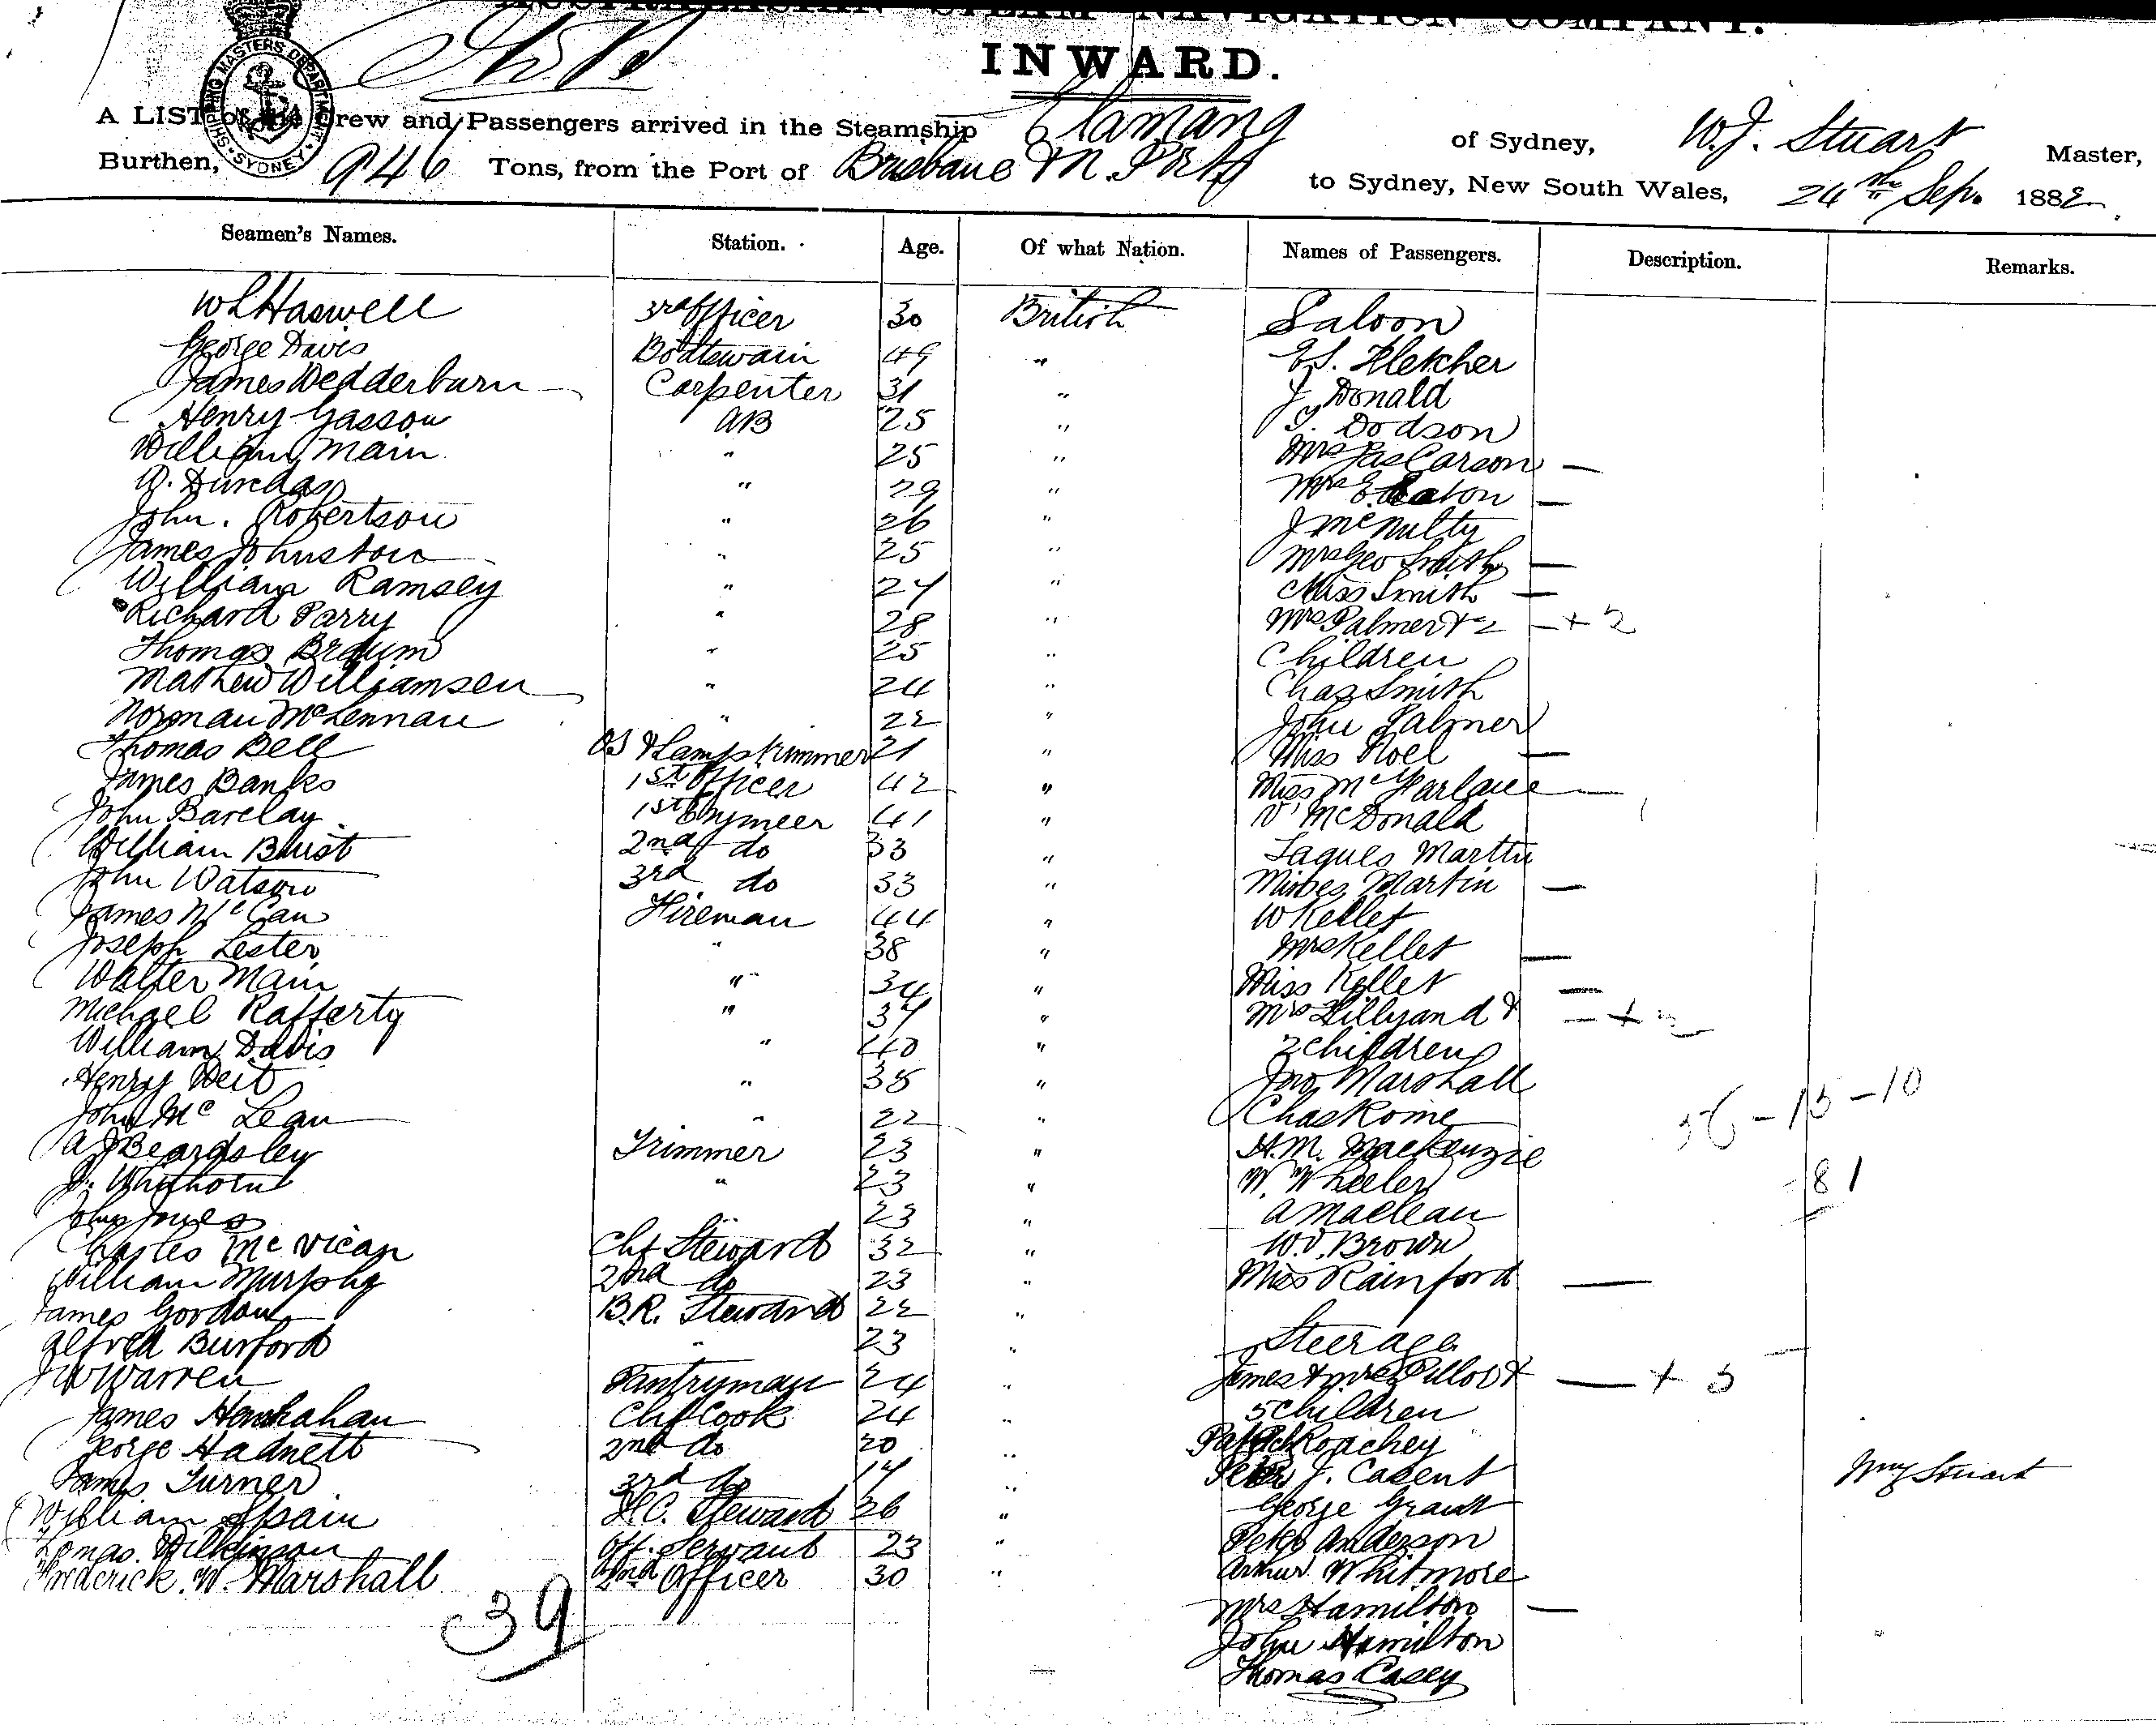 AUSTRALASIAN STEAM NAVIGATION COMPANY.
INWARD.
SHIPPING MASTERS DEPARTMENT SYDNEY
A LIST of the Crew and Passengers arrived in the Steamship Elamang of Sydney, W.J. Stuart Master,
Burthen, 946 Tons, from the Port of Brisbane to Sydney, New South Wales, 24th Sep. 1882
Seamen's Names. Station. Age. Of what Nation. Names of Passengers. Description. Remarks.
W L Haswell 3rd Officer 30 British Saloon
George Davis Boatswain 49 " Fletcher
James Wedderburn Carpenter 31 " J Donald
Henry Gasson AB 25 " Dodson
William Main " 25 " Mrs Jas Carson —
Dundas " 29 " Mrs E Eaton —
John. Robertson " 26 " J McNulty
James Johnston " 25 " Mrs Geo Smith —
William Ramsey " 24 " Miss Smith —
Richard Parry " 28 " Mrs Palmer & 2 — + 2
Thomas " 25 " Children
Mathew Williamsen " 24 " Chas Smith
Norman McLennan " 22 " John Palmer
Thomas Bell OS & Lamptrimmer 21 " Miss Noel —
James Banks 1st Officer 42 " Miss McFarlane —
John Barclay 1st Engineer 41 " McDonald
William Buist 2nd do 33 " Jaques Martin
John Watson 3rd do 33 " Misses Martin —
James McCan Fireman 44 " W Kellet
Joseph Lester " 38 " Mrs Kellet —
Walter Main " 34 " Miss Kellet —
Michael Rafferty " 37 " Mrs &
William Davis " 40 " 2 Children
Henry " 35 " Jno Marshall
John McLean " 22 " Chas Rome
A J Beardsley Trimmer 23 " H.M. Mackenzie
J. Whithorn " 23 " W. Wheeler
John Jones " 23 " A Maclean
81
Charles McVican Chf Steward 32 " W.V. Brown
William Murphy 2nd do 23 " Miss Rainford —
James Gordon B.R. Steward 22 "
Alfred Burford " 23 " Steerage
J W Warren Pantryman 24 " James & Mrs & — + 5
James Chf Cook 24 " 5 Children
George Hadnett 2nd do 20 " Patrick Roachey
James Turner 3rd do 17 " Peter J. Casent
Wm J Stuart
William Spain F.C. Steward 26 " George Grant
Tomas. Wilkinson Off. Servant 23 " Peter Anderson
Frederick. W. Marshall 2nd Officer 30 " Arthur Whitmore
39
Mrs Hamilton —
John Hamilton
Thomas Casey